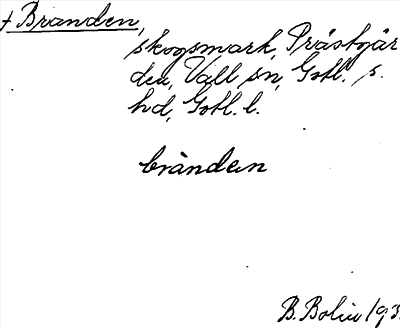 † Branden,
skogsmark, Prästgår
den, Vall sn, Gotl. s.
hd, Gotl. l.
brànden
B. Bolin 193